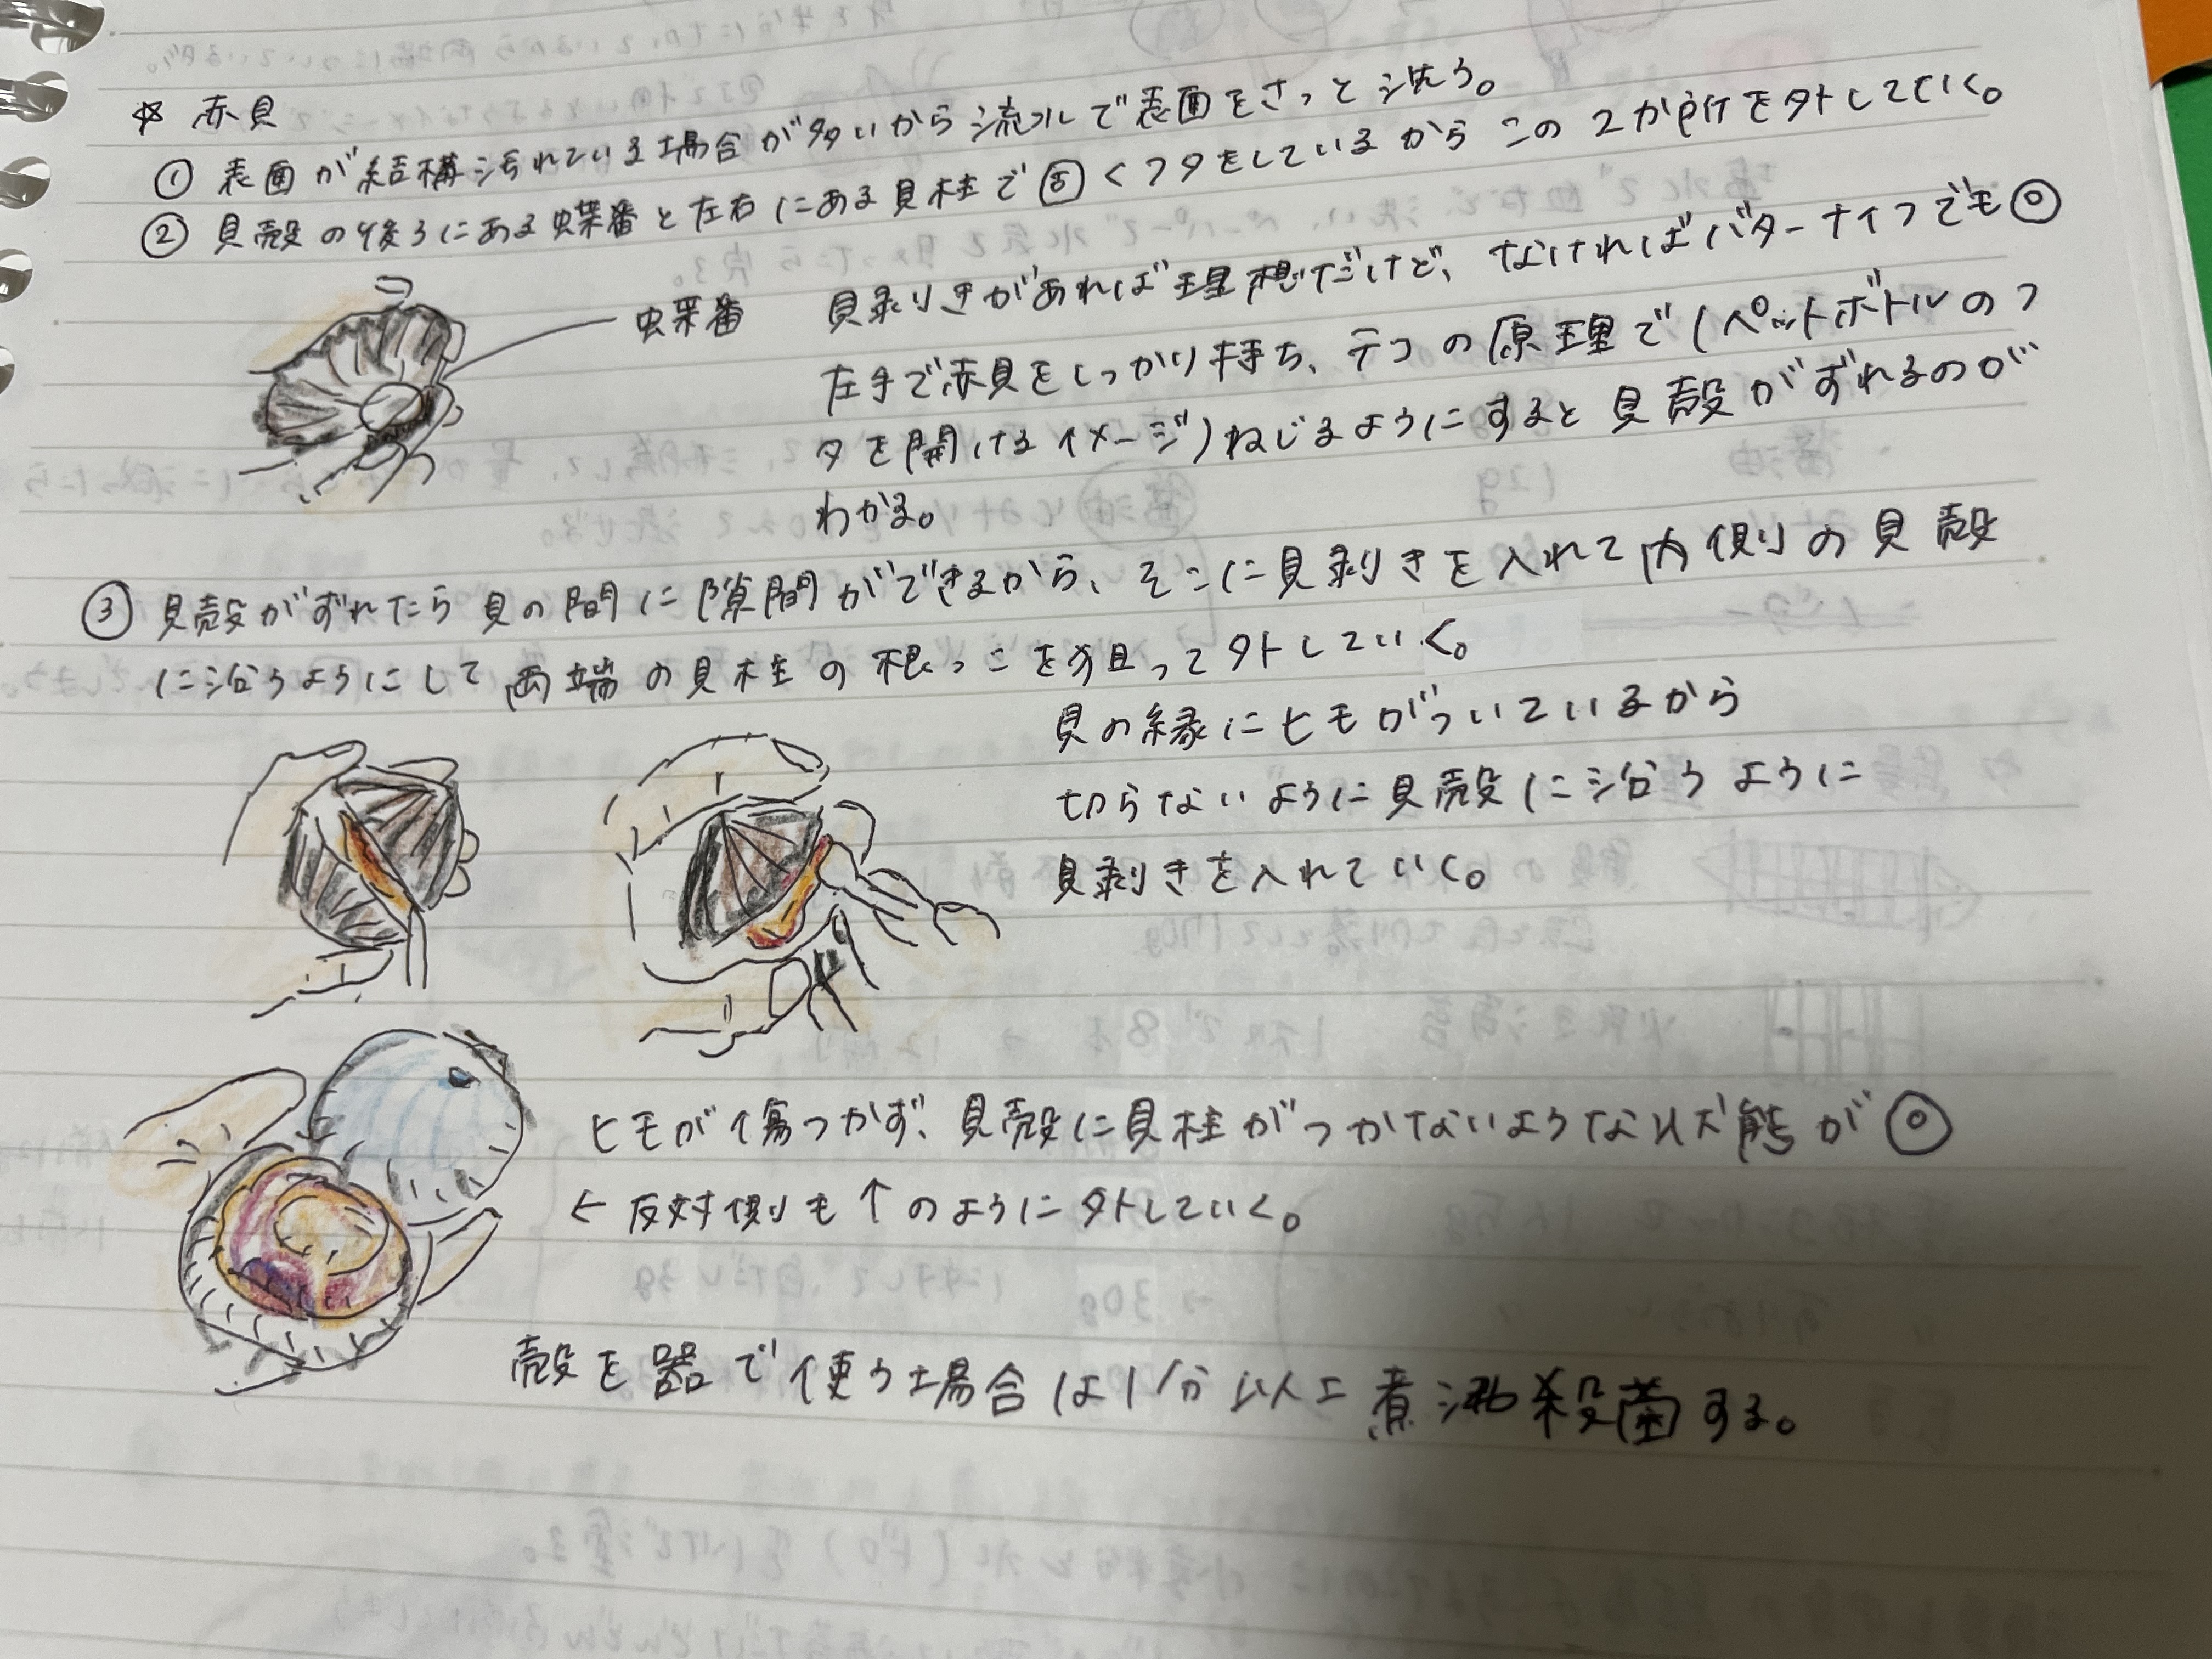 ☆ 赤貝
① 表面が結構汚れている場合が多いから流水で表面をさっと洗う。
② 貝殻の後ろにある蝶番と左右にある貝柱で固くフタをしているからこの2か所を外していく。
蝶番
貝剥きがあれば理想だけど、なければバターナイフでも◎
左手で赤貝をしっかり持ち、テコの原理で(ペットボトルのフ
タを開けるイメージ)ねじるようにすると貝殻がずれるのが
わかる。
③ 貝殻がずれたら貝の間に隙間ができるから、そこに貝剥きを入れて内側の貝殻
に沿うようにして両端の貝柱の根っこを狙って外していく。
貝の縁にヒモがついているから
切らないように貝殻に沿うように
貝剥きを入れていく。
ヒモが傷つかず、貝殻に貝柱がつかないような状態が◎
← 反対側も↑のように外していく。
殻を器で使う場合は1分以上煮沸殺菌する。